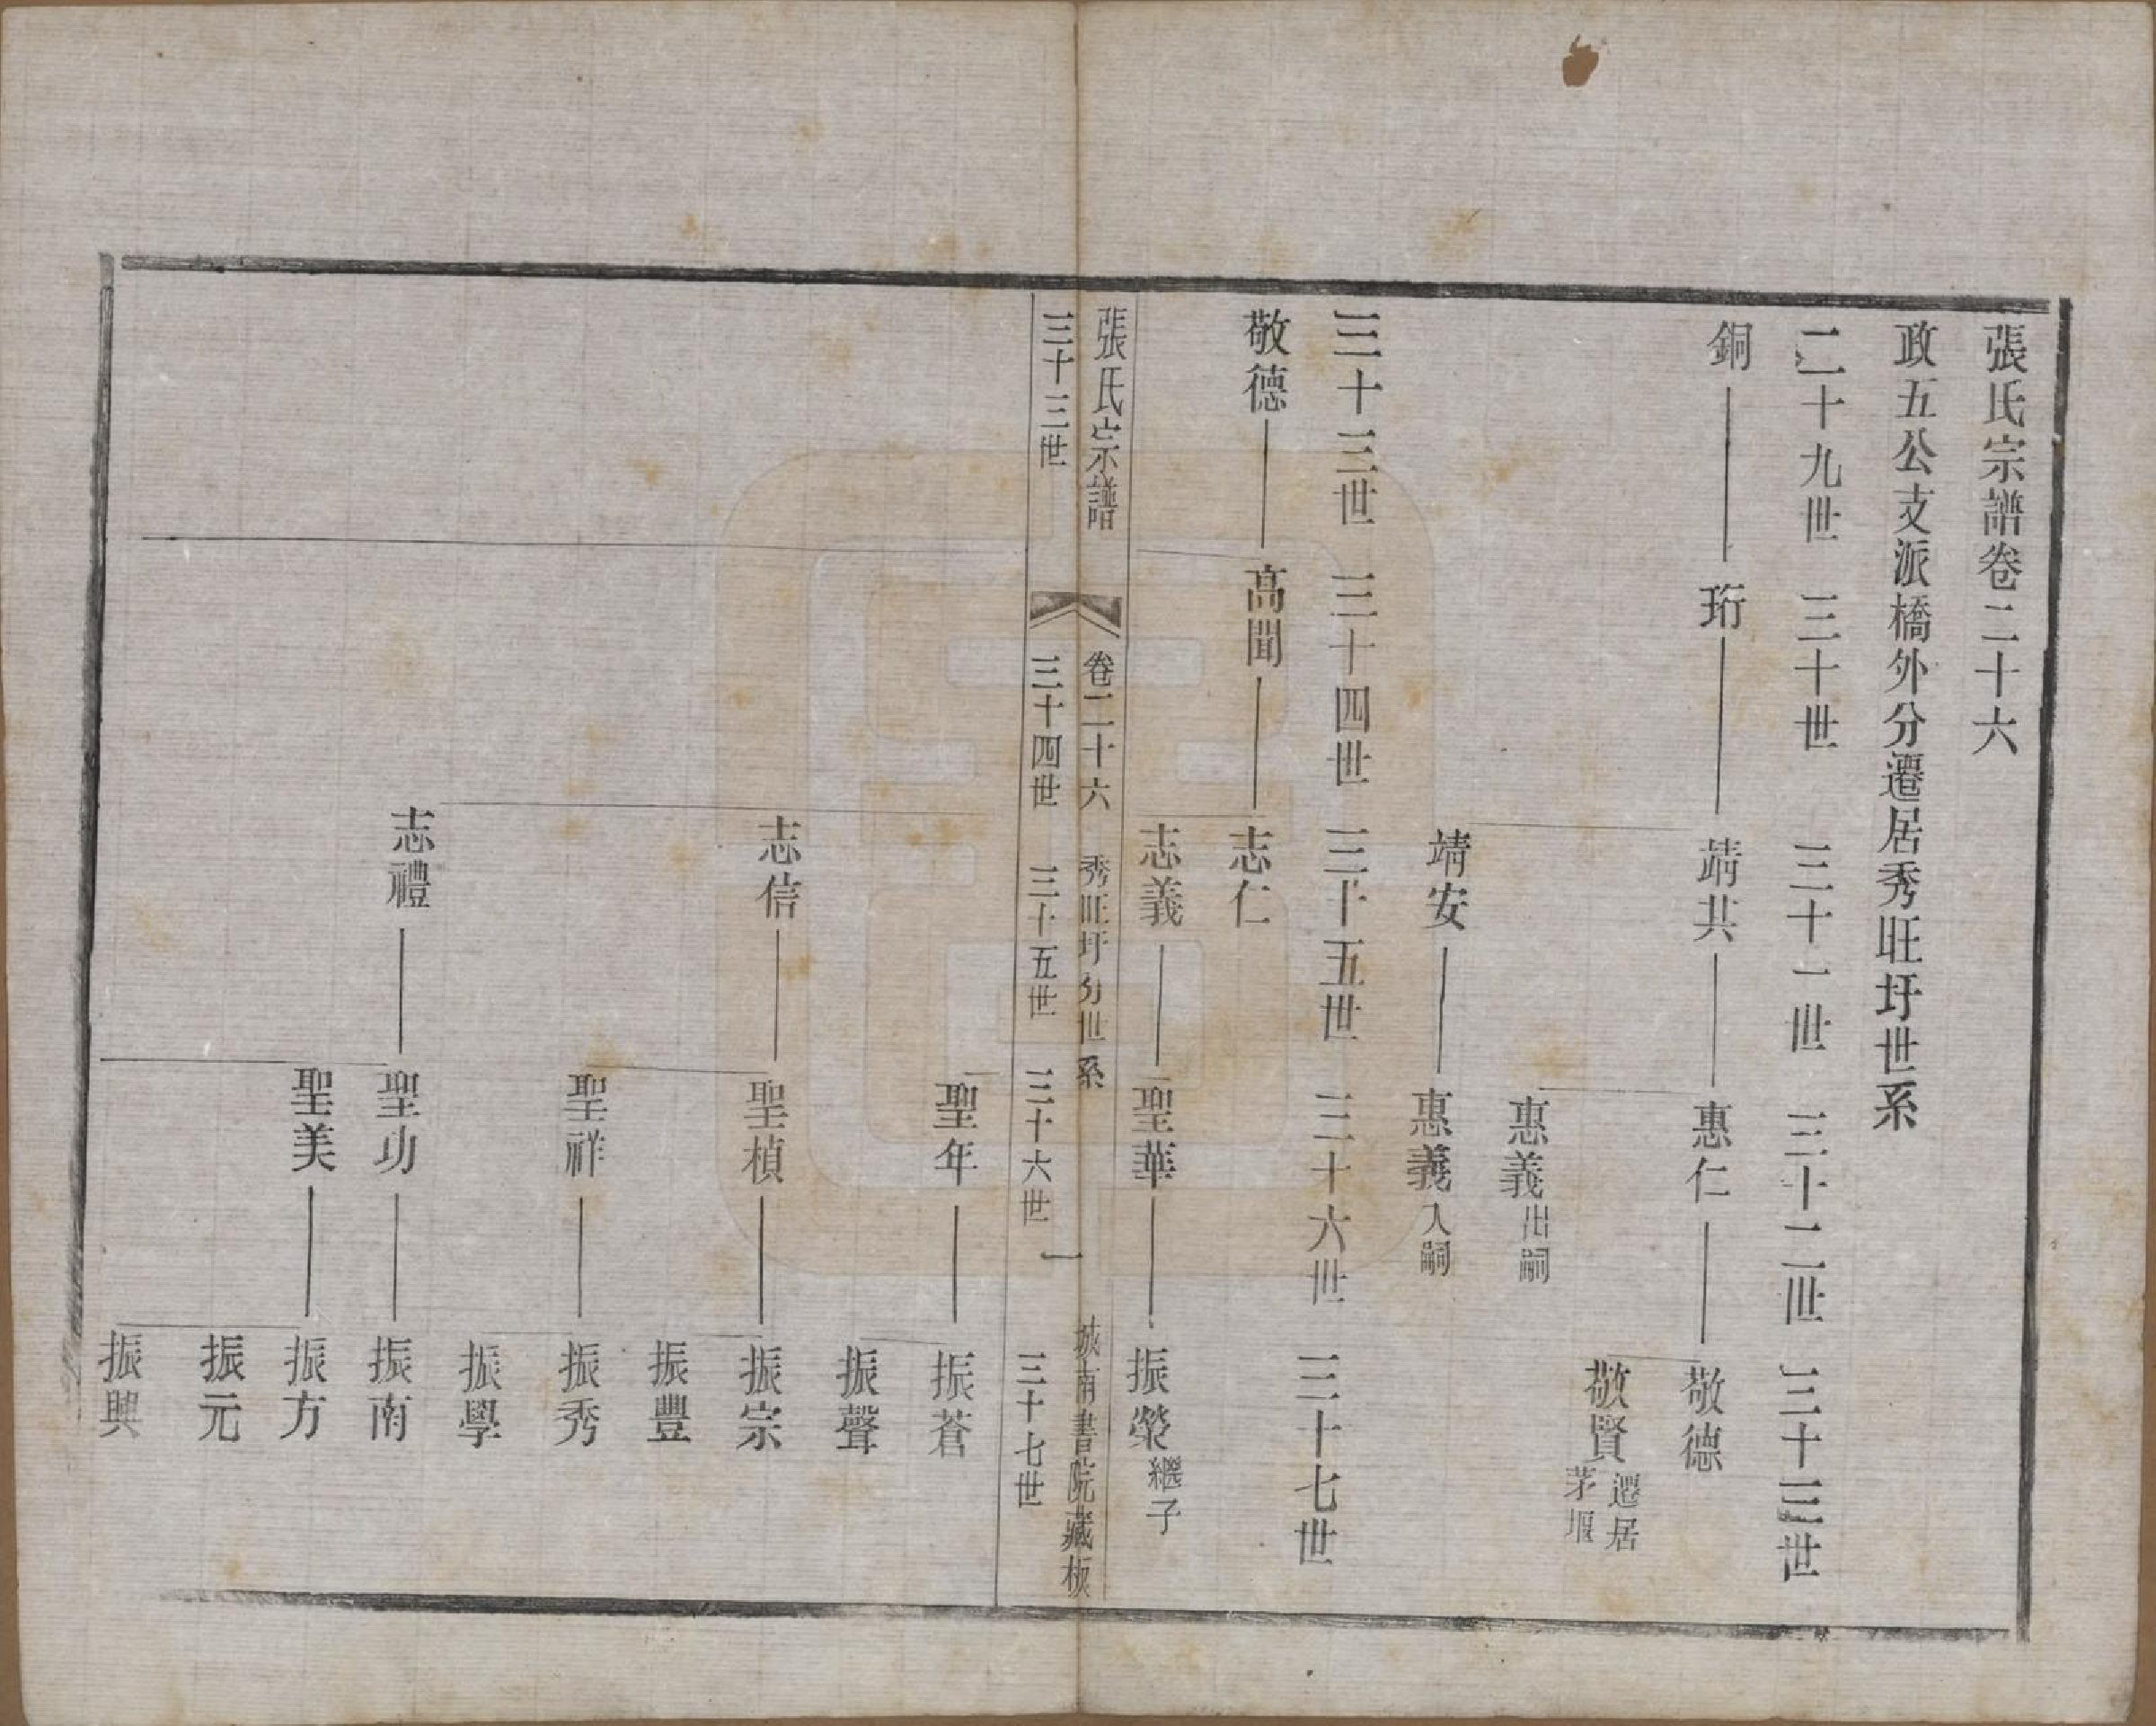 張氏宗譜卷二十六
政五公支派橋外分遷居秀旺圩世系
二十九世　三十世　三十一世　三十二世　三十三世
銅　珩　靖共　惠仁　敬德
敬賢　遷居茅堰
惠義　出嗣
靖安　惠義　入嗣
三十三世　三十四世　三十五世　三十六世　三十七世
敬德　高聞　志仁
志義　聖華　振榮　繼子
張氏宗譜　卷二十六　秀旺圩分世系　一　城南書院藏板
三十三世　三十四世　三十五世　三十六世　三十七世
聖年　振蒼
振聲
志信　聖楨　振宗
振豐
聖祥　振秀
振學
志禮　聖功　振南
聖美　振方
振元
振興